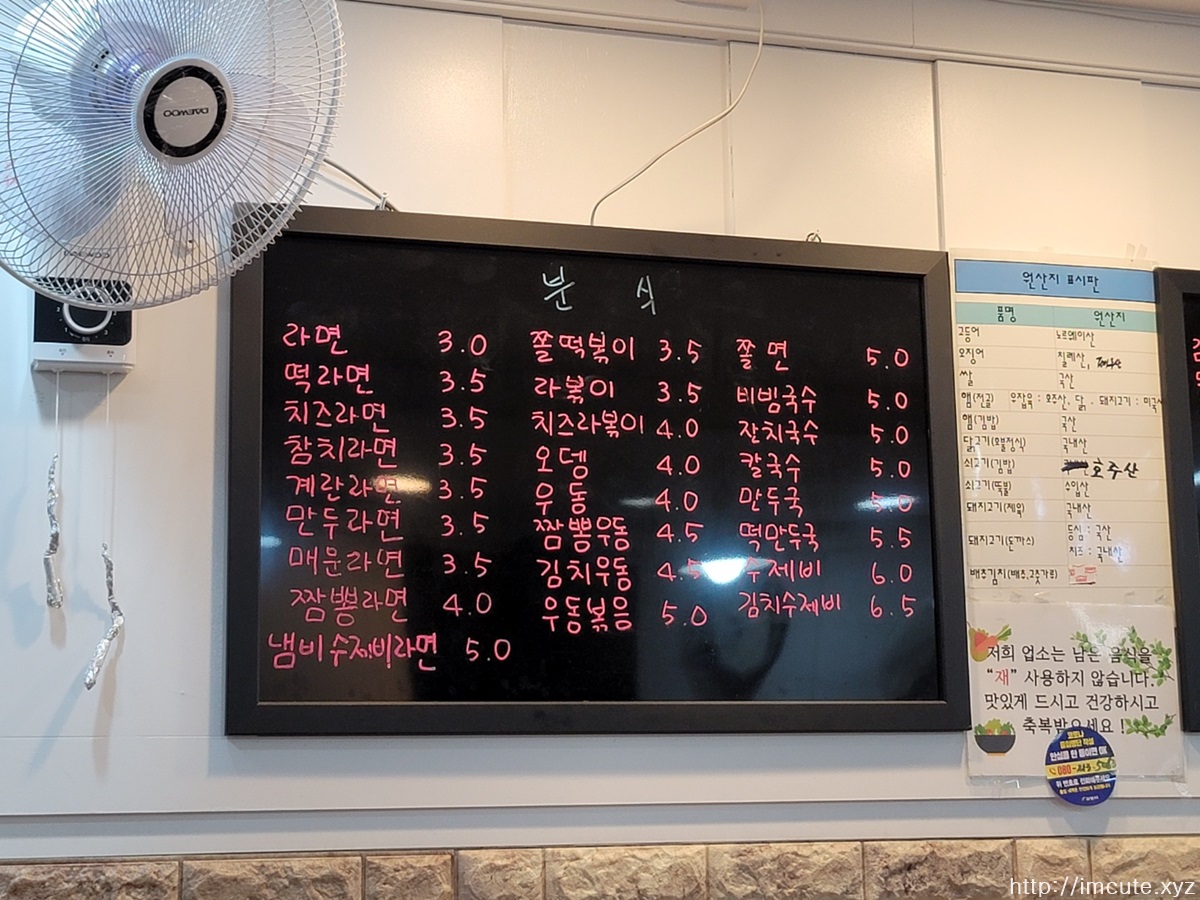 DAEWOO
분 식
라면 3.0
떡라면 3.5
치즈라면 3.5
참치라면 3.5
계란라면 3.5
만두라면 3.5
매운라면 3.5
짬뽕라면 4.0
냄비수제비라면 5.0
쫄떡볶이 3.5
라볶이 3.5
치즈라볶이 4.0
오뎅 4.0
우동 4.0
짬뽕우동 4.5
김치우동 4.5
우동볶음 5.0
쫄면 5.0
비빔국수 5.0
잔치국수 5.0
칼국수 5.0
만두국 5.0
떡만두국 5.5
수제비 6.0
김치수제비 6.5
원산지 표시판
품명 원산지
고등어 노르웨이산
오징어 칠레산,
쌀 국산
햄(전골) 우잡육 : 호주산, 닭, 돼지고기 : 미국산
햄(김밥) 국산
닭고기 국내산
쇠고기(김밥) 호주산
쇠고기(뚝불) 수입산
돼지고기(제육) 국내산
돼지고기(돈까스) 등심 : 국산
치즈 : 국내산
배추김치(배추,고춧가루)
저희 업소는 남은 음식을
“재” 사용하지 않습니다.
맛있게 드시고 건강하시고
축복받으세요 !
코로나
출입명단 작성
안심콜 한 통이면 OK
080-
위 번호로 전화해주세요
http://imcute.xyz